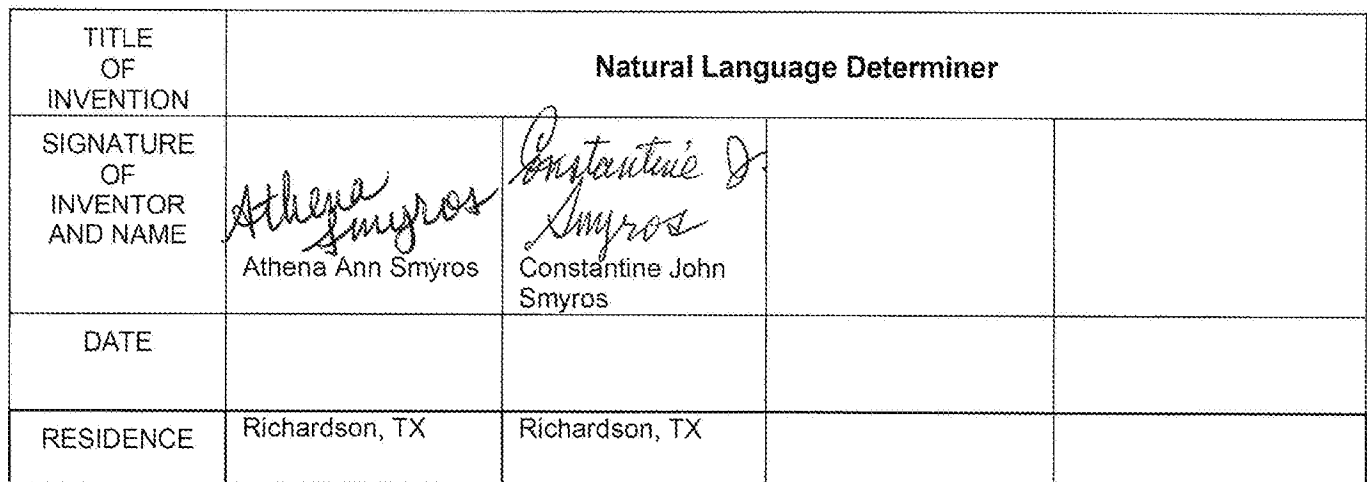 TITLE
OF
INVENTION
Natural Language Determiner
SIGNATURE
OF
INVENTOR
AND NAME
Athena
Smyros
Athena Ann Smyros
Constantine J.
Smyros
Constantine John
Smyros
DATE
RESIDENCE
Richardson, TX
Richardson, TX